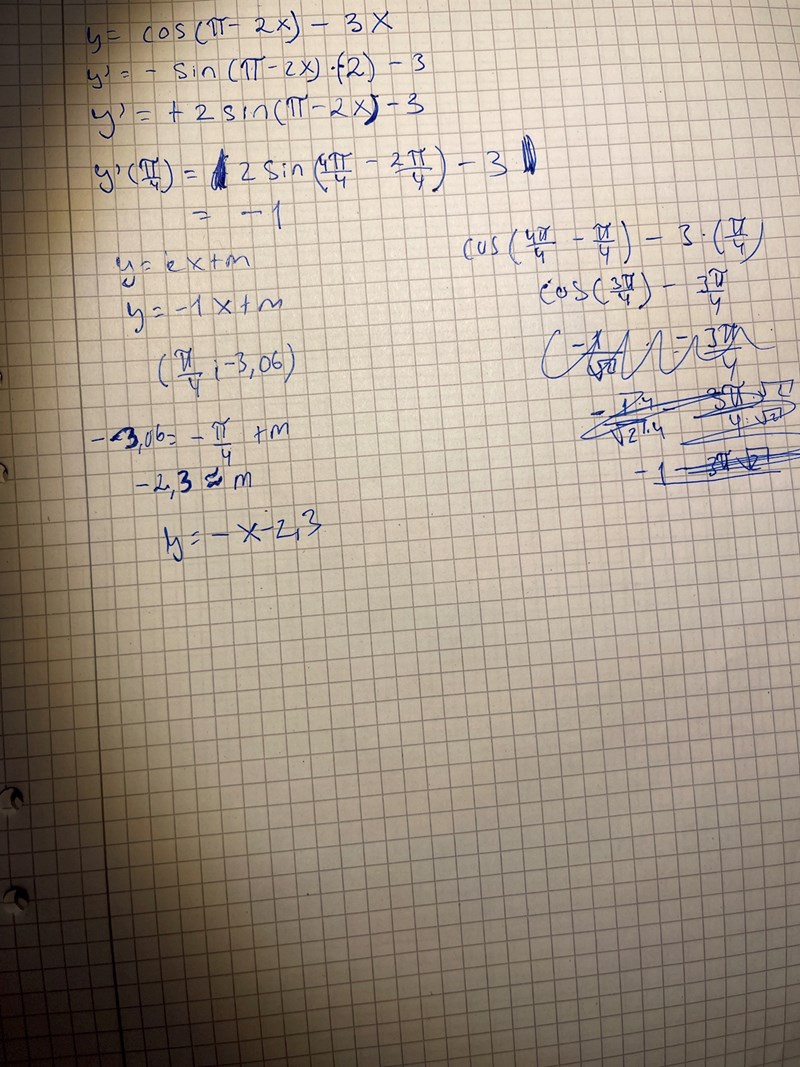 y = cos(π - 2x) - 3x
y' = - sin(π-2x)·(-2) - 3
y' = + 2 sin(π - 2x) - 3
y'(π/4) = 2 sin(4π/4 - 2π/4) - 3
= -1
y = kx+m
y = -1x+m
(π/4 ; -3,06)
-3,06 = - π/4 + m
-2,3 ≈ m
y = - x - 2,3
cos(4π/4 - π/4) - 3·(π/4)
cos(3π/4) - 3π/4
-1/√2 - 3π/4
-1·4/√2·4 - 3π·√2/4·√2
-1 - 3π√2